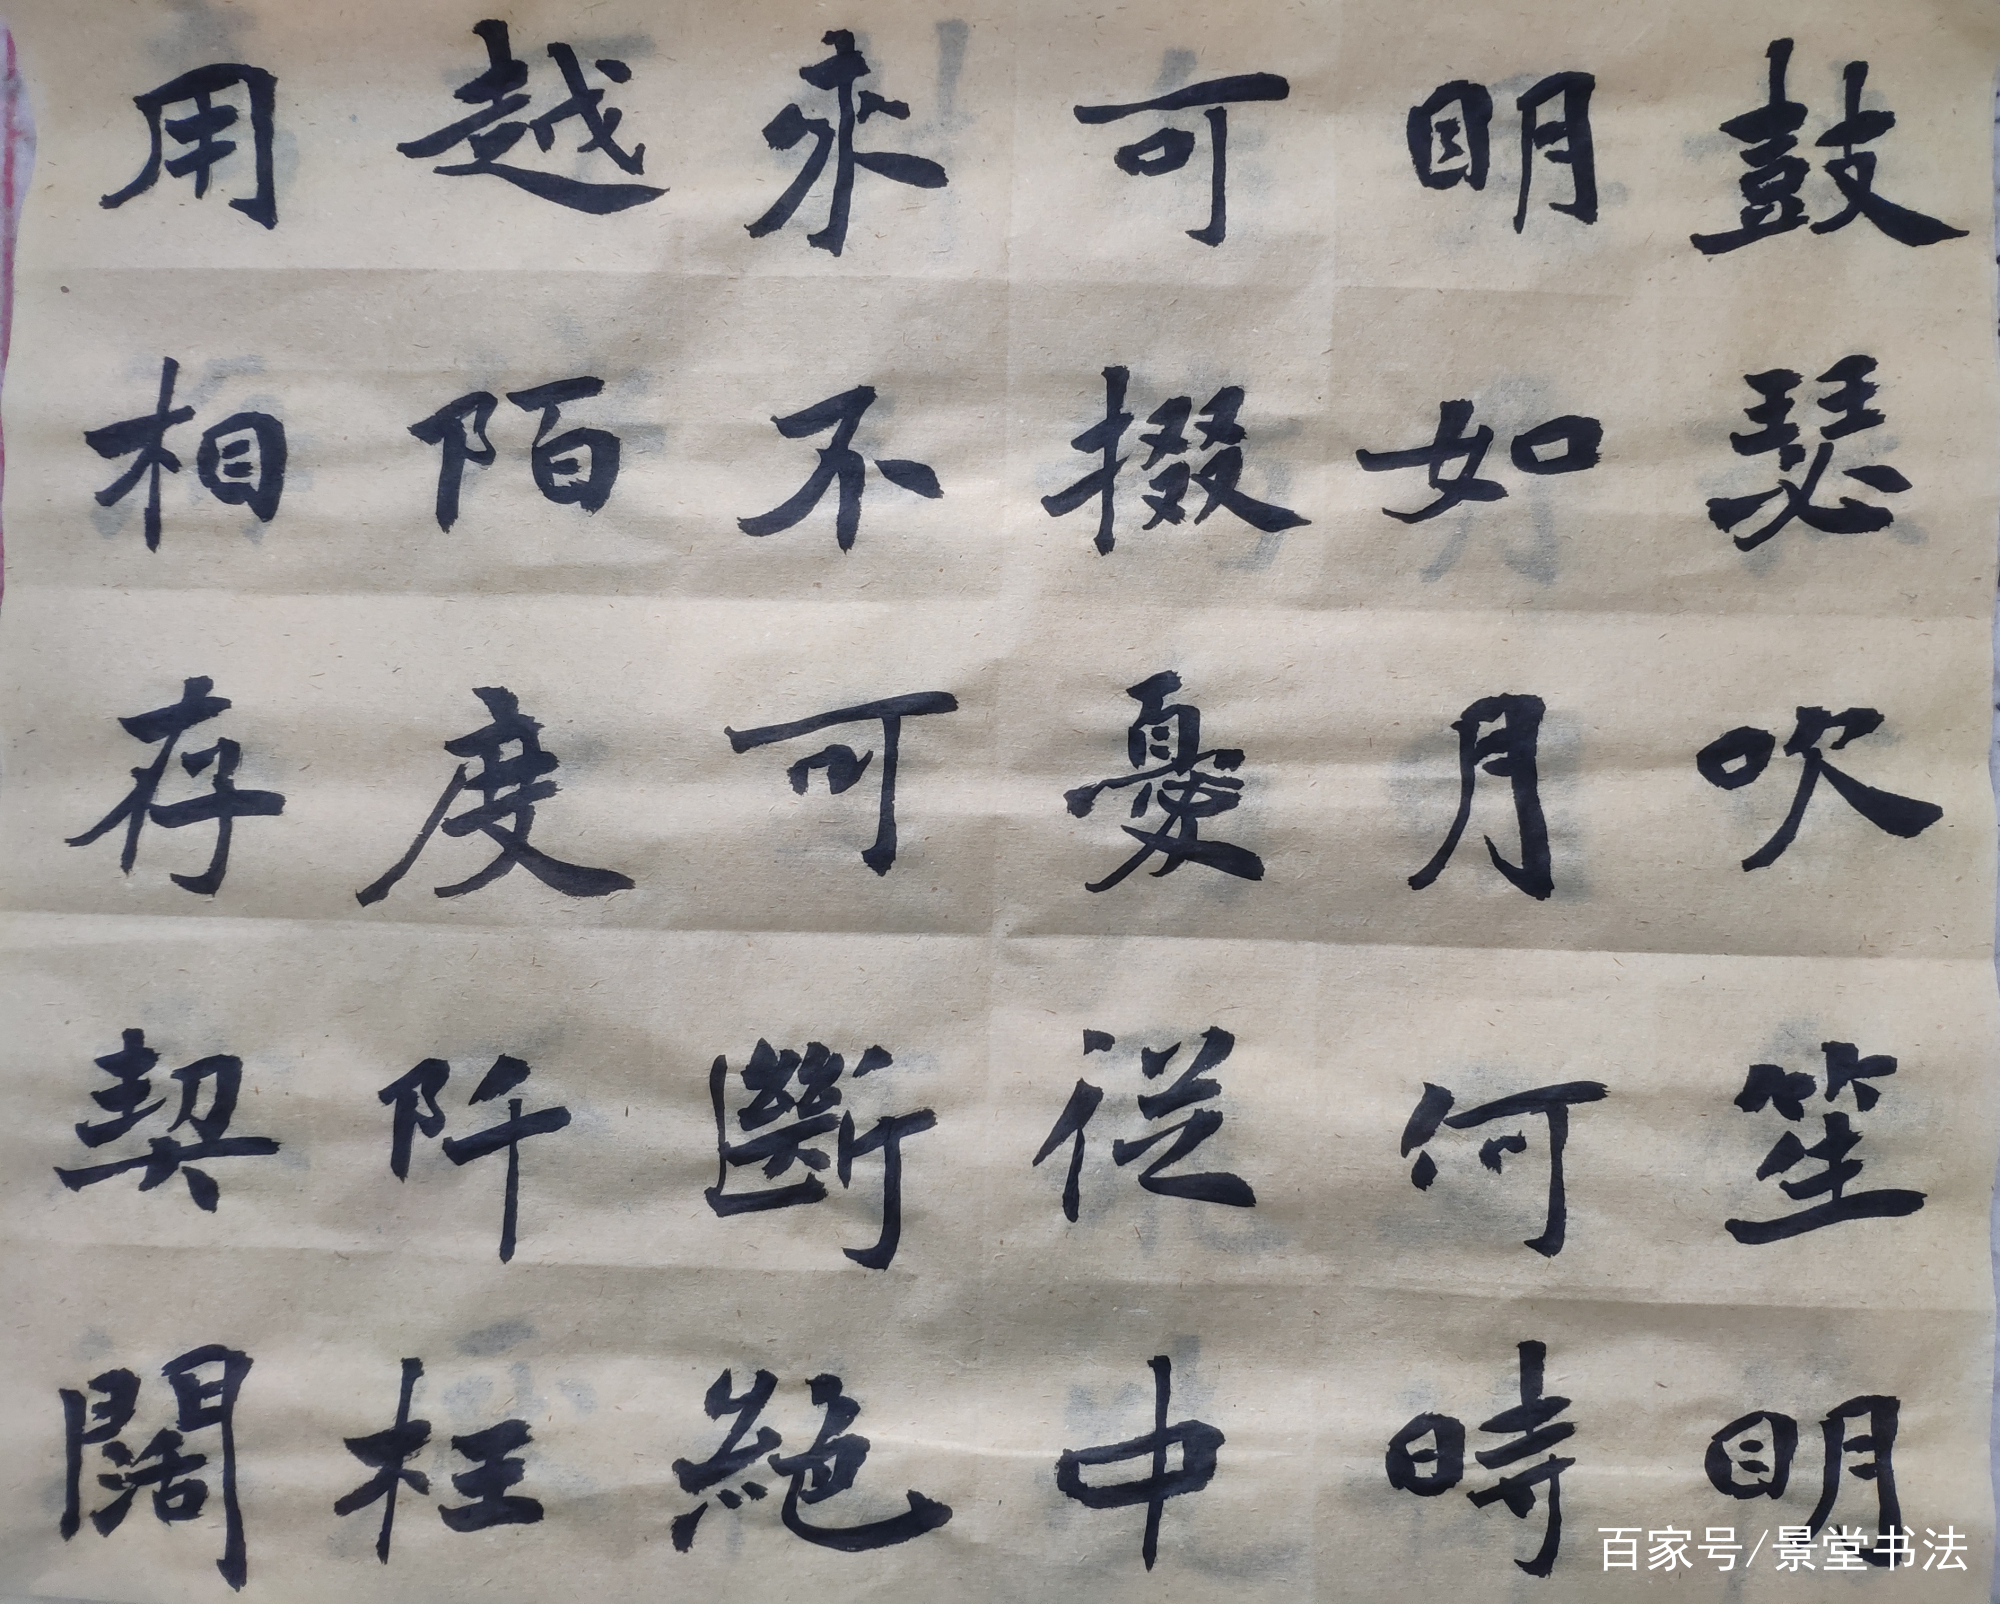 鼓瑟吹笙明
明如月何時
可掇憂從中
來不可斷絕
越陌度阡枉
用相存契闊
百家号/景堂书法